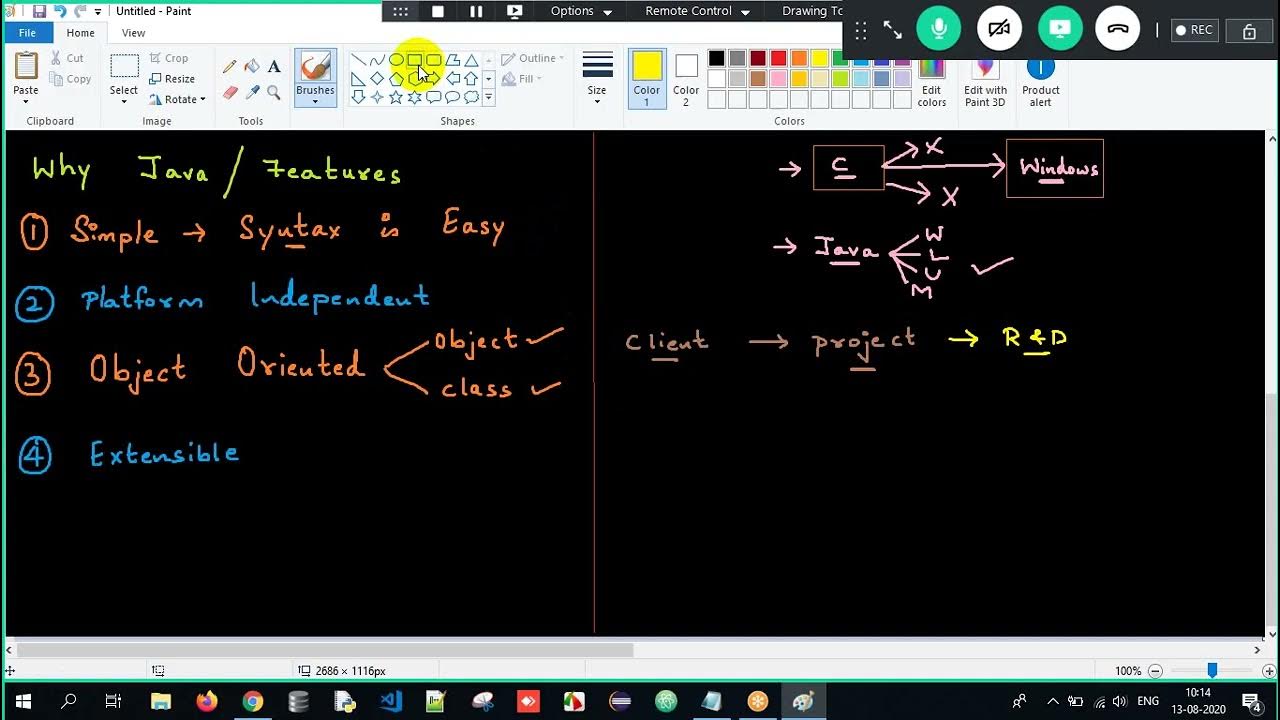 Untitled - Paint
Options
Remote Control
Drawing To
REC
File
Home
View
Paste
Cut
Copy
Clipboard
Select
Crop
Resize
Rotate
Image
A
Tools
Brushes
Outline
Fill
Shapes
Size
Color 1
Color 2
Edit colors
Colors
Edit with Paint 3D
Product alert
Why Java / Features
① Simple → Syntax is Easy
② Platform Independent
③ Object Oriented
Object ✓
class ✓
④ Extensible
→ C → Windows
X
X
→ Java
W
L
U
M
✓
Client → project → R & D
2686 × 1116px
100%
ENG
10:14
13-08-2020
4